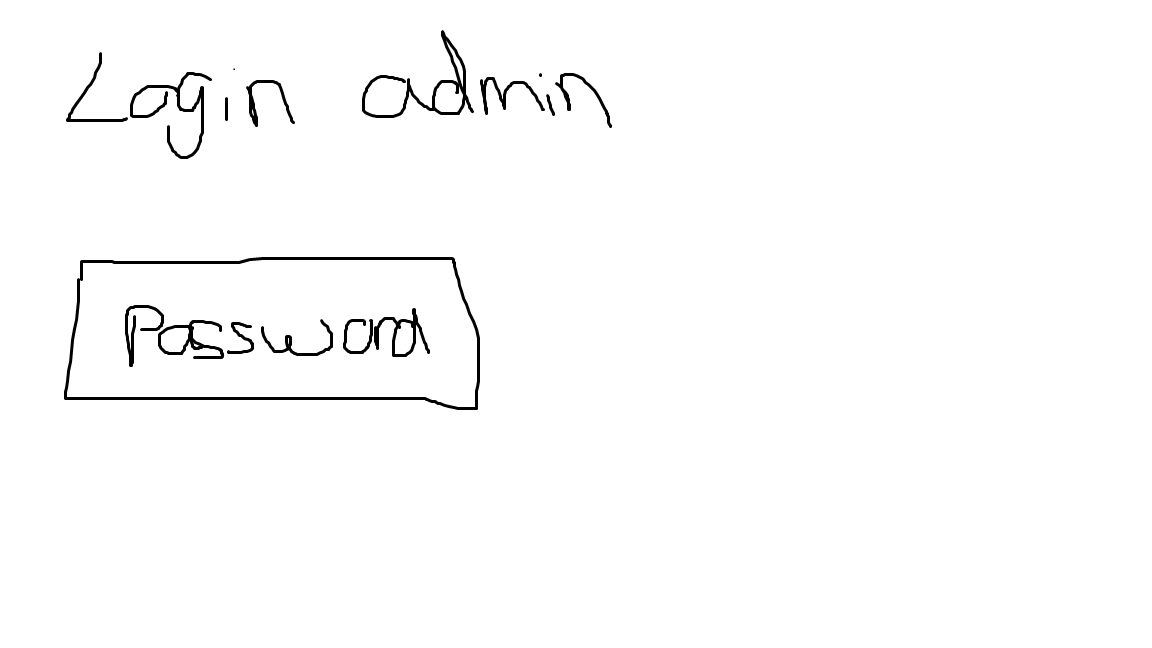 Login admin
Password